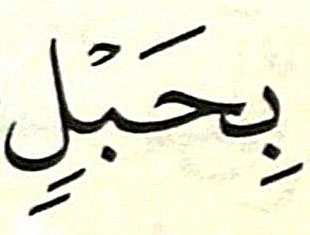 بِحَبْلٍ